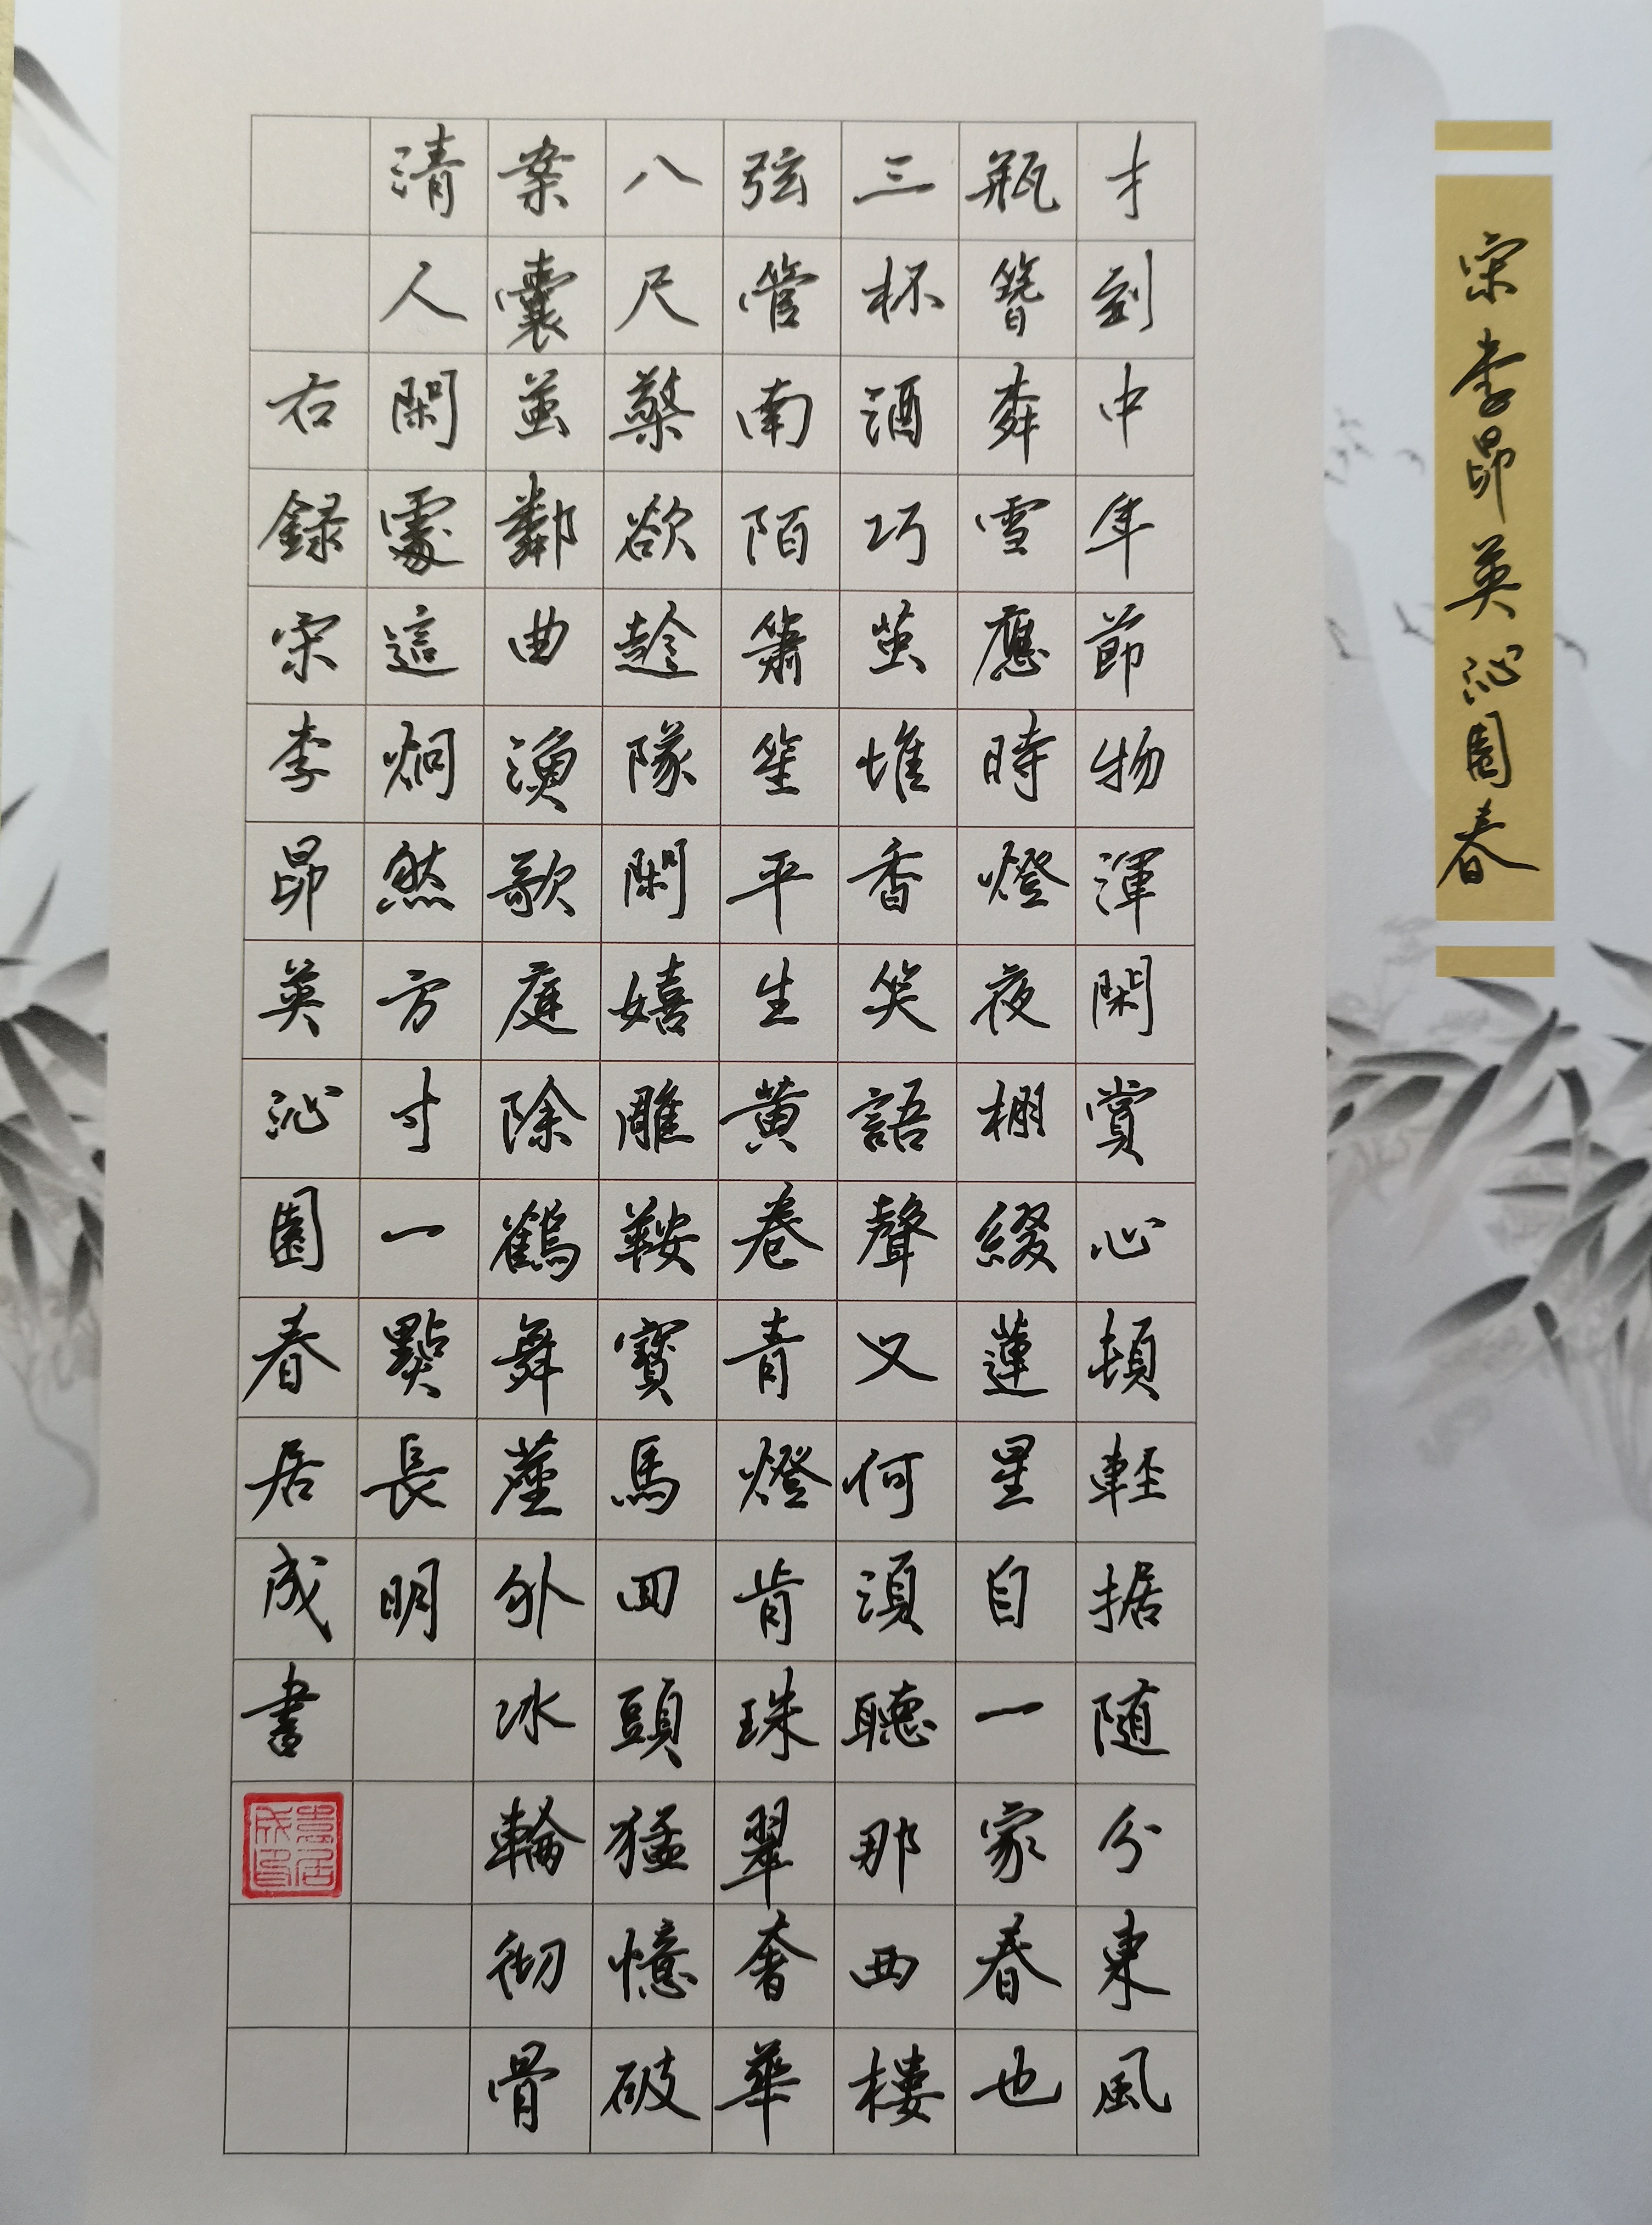 宋李昴英沁園春
才到中年節物渾閑賞心頓輕据随分東風
瓶簪雪應時燈夜棚綴蓮星自一家春也
三杯酒巧茧堆香笑語聲又何須聽那西樓
弦管南陌簫笙平生黄卷青燈肯珠翠奢華
八尺檠欲趁隊閑嬉雕鞍寶馬回頭猛憶破
案囊萤鄰曲漁歌庭除鶴舞塵外冰輪彻骨
清人閑處這炯然方寸一點長明
右録宋李昴英沁園春居成書